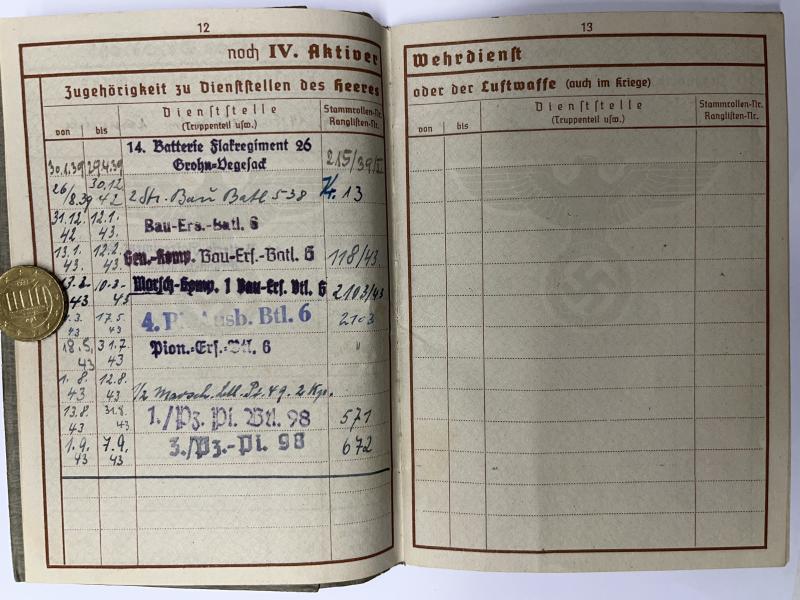 12
noch IV. Aktiver
Zugehörigkeit zu Dienststellen des Heeres
von bis Dienststelle (Truppenteil usw.) Stammrollen-Nr. Ranglisten-Nr.
30.1.39 29.4.39 14. Batterie Flakregiment 26 Grohn-Vegesack 215/39/
26/8.39 30.12 42 2 Str. Bau Batl 538 13
31.12. 42 12.1. 43. Bau-Ers.-Batl. 6
13.1. 43. 12.2. 43. Gen.-Komp. Bau-Erf.-Batl. 6 118/43.
43 43 Marsch-Komp. 1 Bau-Erf. Btl. 6 2103/43
3. 43 17.5. 43 4. Ausb. Btl. 6 2103
18.5. 43 31.7. 43 Pion.-Erf.-Btl. 6 "
1.8. 43 12.8. 43 2 Kp.
13.8. 43 31.8. 43 1./Pz. Pi. Btl. 98 571
1.9. 43 7.9. 43 3./Pz.-Pi. 98 672
13
Wehrdienst
oder der Luftwaffe (auch im Kriege)
von bis Dienststelle (Truppenteil usw.) Stammrollen-Nr. Ranglisten-Nr.